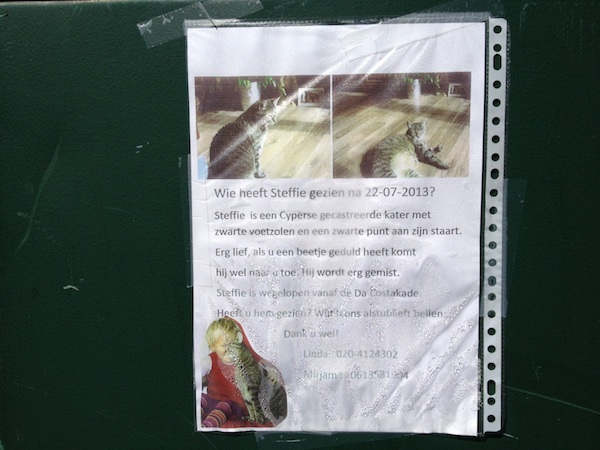 Wie heeft Steffie gezien na 22-07-2013?
Steffie is een Cyperse gecastreerde kater met
zwarte voetzolen en een zwarte punt aan zijn staart.
Erg lief, als u een beetje geduld heeft komt
hij wel naar u toe. Hij wordt erg gemist.
Steffie is wegelopen vanaf de Da Costakade.
Heeft u hem gezien? Wilt u ons alstublieft bellen:
Dank u wel!
Linda : 020-4124302
Mirjam : 0613581904